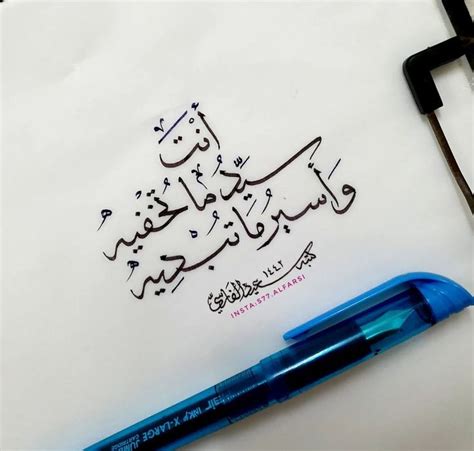 أنتَ
سيِّدُ ما تُخفيهِ
وأسيرُ ما تُبديهِ
كتبه سعيد الفارسي ١٤٤٢
INSTA:S77.ALFARSI
X-LARGE
CARTRIDGE